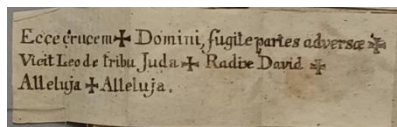 Ecce crucem ✠ Domini, fugite partes adversæ ✠
Vicit Leo de tribu Juda ✠ Radixe David ✠
Alleluja ✠ Alleluja.